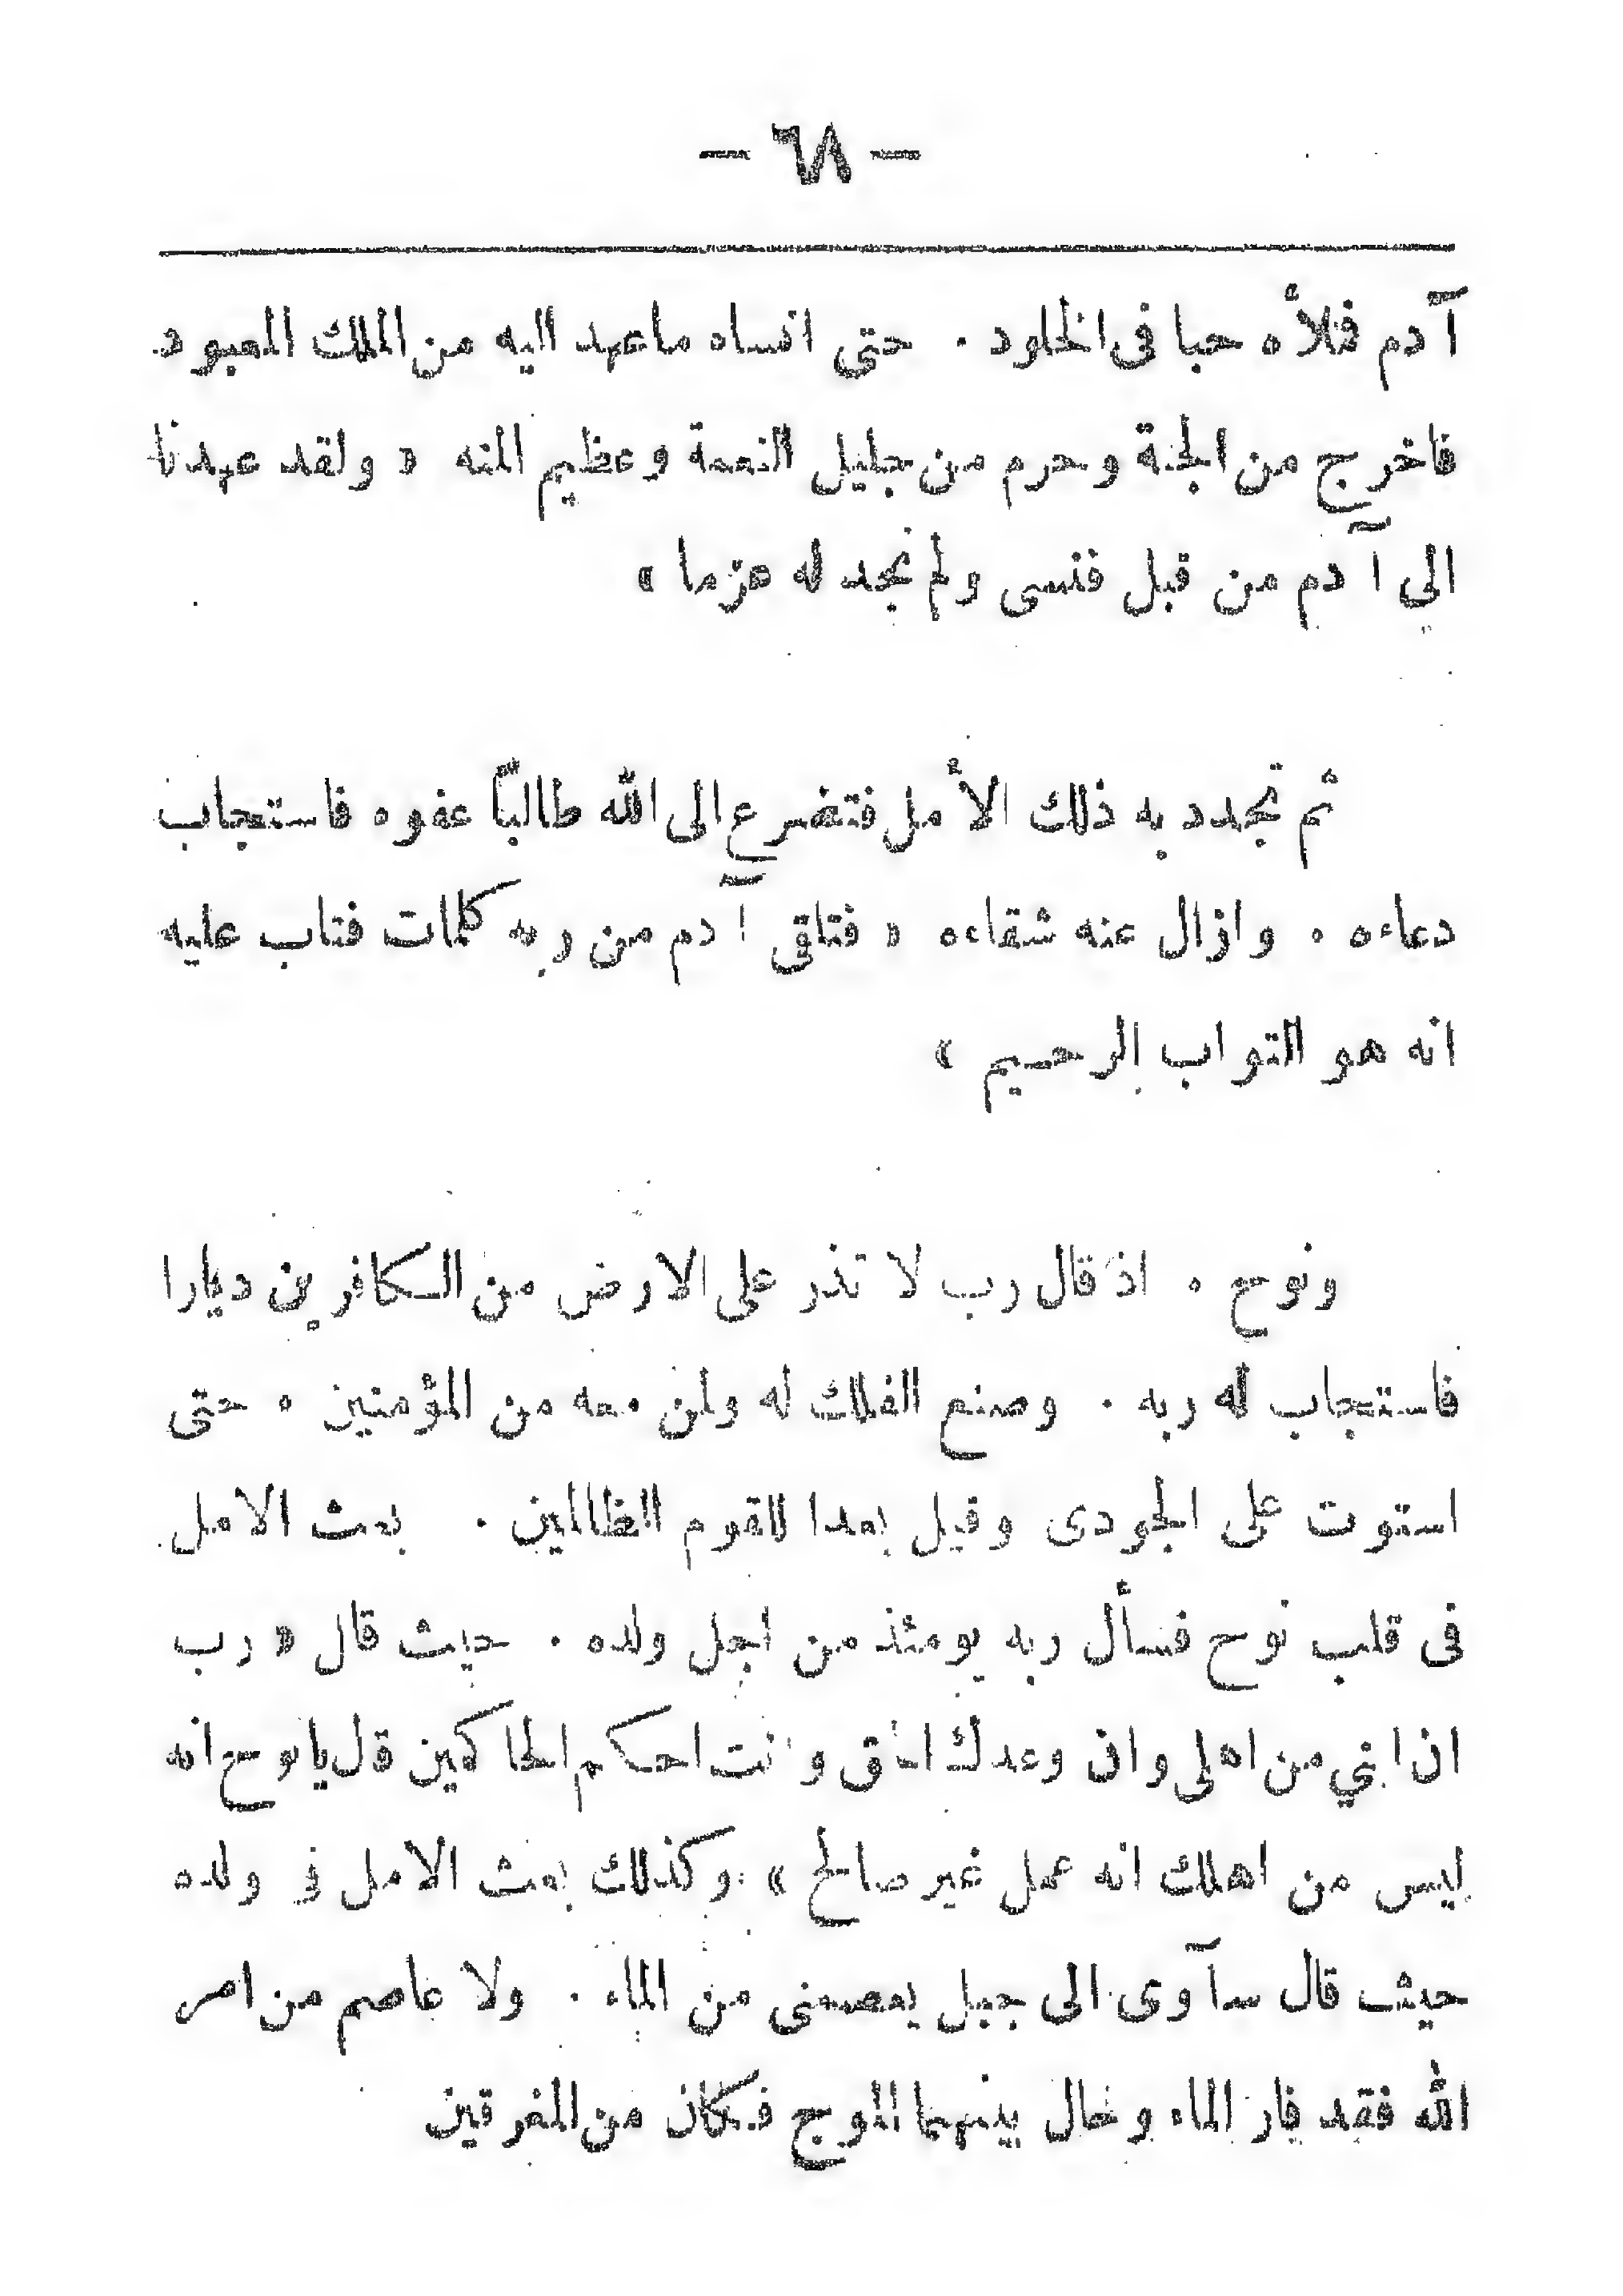 — ٦٨ —
آدم فملأه حبا فى الخلود . حتى انساه ماعهد اليه من الملك المعبود
فاخرج من الجنة وحرم من جليل النعمة وعظيم المنه « ولقد عهدنا
الي آدم من قبل فنسى ولم نجد له عزما »
ثم تجدد به ذلك الأمل فتضرع الى الله طالباً عفوه فاستجاب
دعاءه . وازال عنه شقاءه « فتلقى آدم من ربه كلمات فتاب عليه
انه هو التواب الرحيم »
ونوح . اذ قال رب لا تذر على الارض من الكافرين ديارا
فاستجاب له ربه . وصنع الفلك له ولمن معه من المؤمنين . حتى
استوت على الجودى وقيل بعدا للقوم الظالمين . بعث الامل
فى قلب نوح فسأل ربه يومئذ من اجل ولده . حيث قال « رب
ان ابني من اهلى وان وعدك الحق وانت احكم الحاكمين قال يا نوح انه
ليس من اهلك انه عمل غير صالح » وكذلك بعث الامل فى ولده
حيث قال سآوى الى جبل يعصمنى من الماء . ولا عاصم من امر
الله فقد فار الماء وحال بينهما الموج فكان من المغرقين